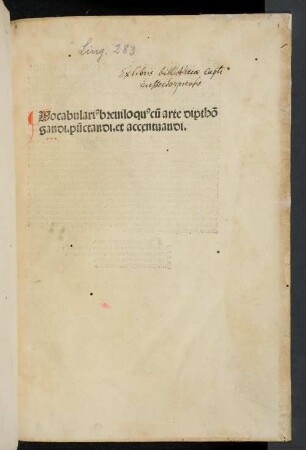 Ling. 283
Ex libris bibliothecæ
Vocabulariꝰ breuiloquꝰ cū arte dipthō
gandi. pūctandi. et accentuandi.